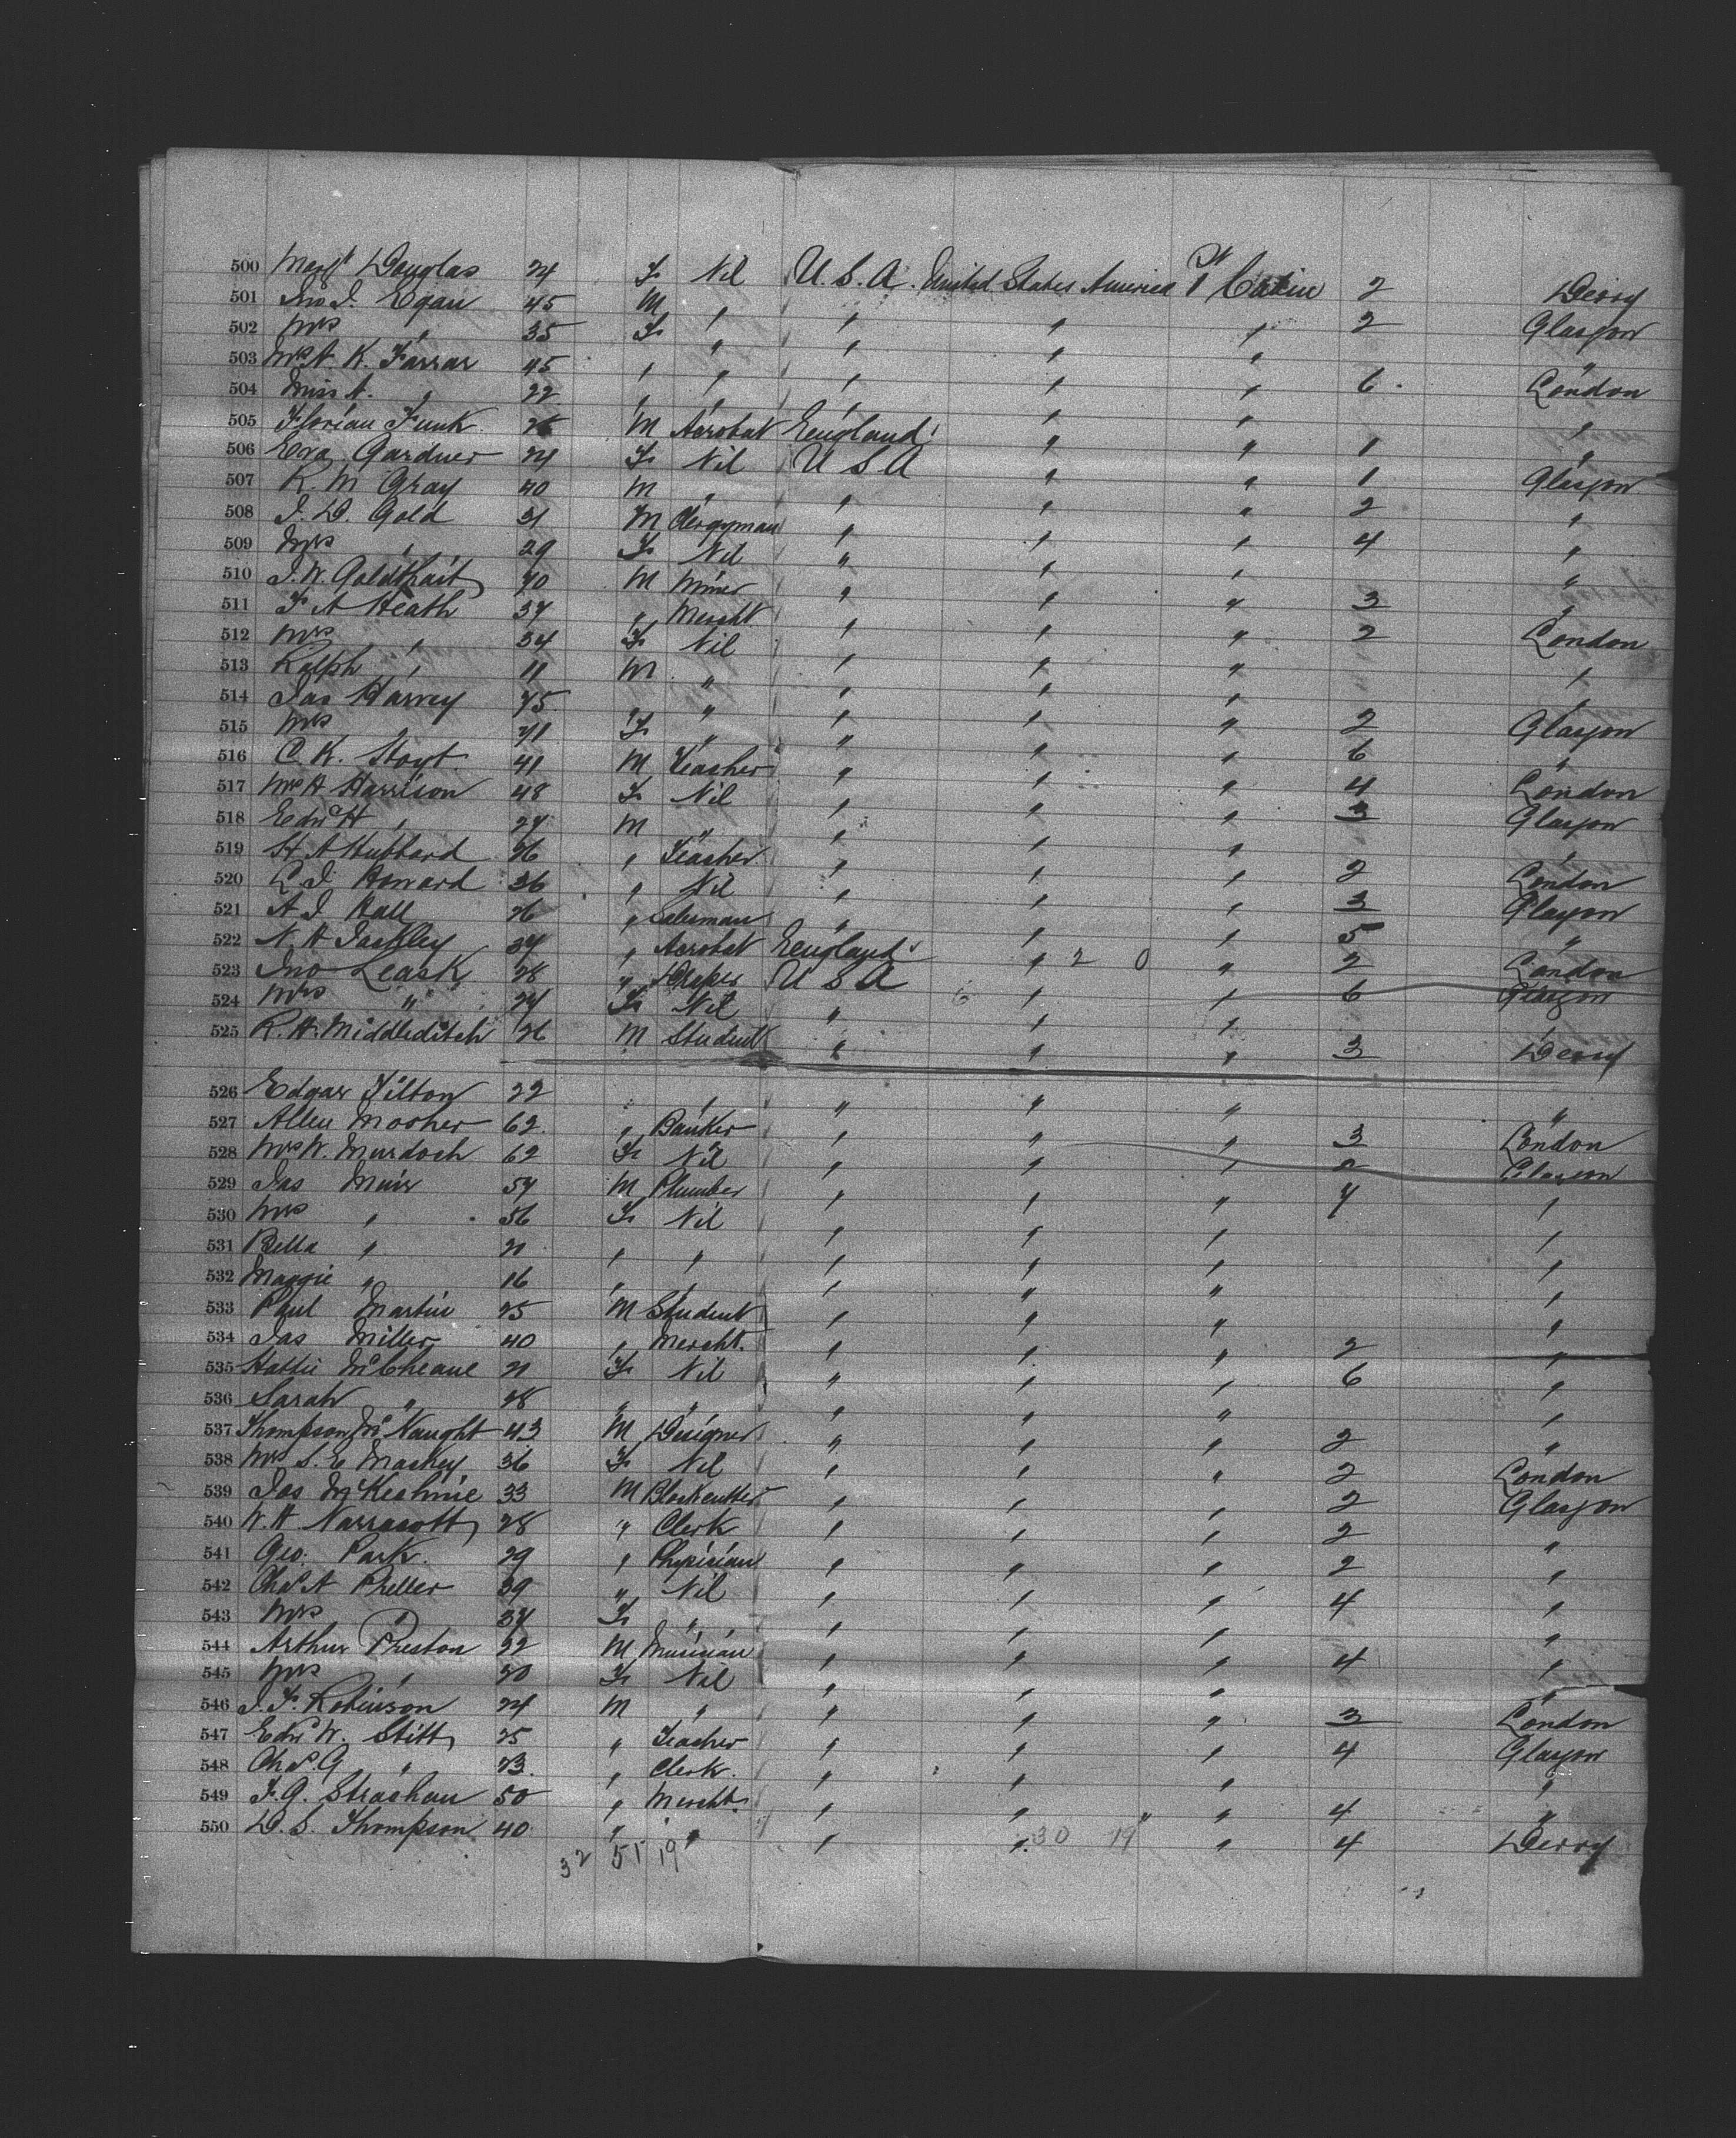 500 Margt Douglas 24 F Nil U.S.A. United States America 1st Cabin 2 Derry
501 Jno J. Egan 45 M " " " " 2 Glasgow
502 Mrs " 35 F " " " " "
503 Mrs A. K. Farrar 45 " " " " " 6 London
504 Miss A. " 22 " " " " " "
505 Florian Funk 26 M Acrobat England " " 1 "
506 Eva Gardner 24 F Nil U S A " " 1 Glasgow
507 R. M Gray 40 M " " " " 2 "
508 J. D. Gold 31 M Clergyman " " " 4 "
509 Mrs " 29 F Nil " " " "
510 J. W. Goldthait 40 M Miner " " " 3 "
511 F A Heath 37 " Mercht " " " 2 London
512 Mrs " 34 F Nil " " " "
513 Ralph " 11 M " " " " "
514 Jas Harvey 75 " " " " " 2 Glasgow
515 Mrs " 71 F " " " " 6 "
516 C. K. Hoyt 41 M Teacher " " " 4 London
517 Mrs H Harrison 48 F Nil " " " 3 Glasgow
518 Edwd H " 24 M " " " " "
519 H A Hubbard 26 " Teacher " " " 2 London
520 L. J. Howard 36 " Nil " " " 3 Glasgow
521 A. J. Hall 26 " Salesman " " " 5 "
522 N. H Jackley 34 " Acrobat England " 2 0 " 2 London
523 Jno Leask 28 " Draper U S A 6 " " 6 Glasgow
524 Mrs " 24 F Nil " " " "
525 R. H. Middleditch 26 M Student " " " 3 Derry
526 Edgar Tilton 22 " " " " "
527 Allen Mosher 62 " Banker " " " 3 London
528 Mrs W. Murdoch 62 F Nil " " " Glasgow
529 Jas Muir 54 M Plumber " " " 7 "
530 Mrs " 56 F Nil " " " "
531 Bella " 21 " " " " " "
532 Maggie " 16 " " " " " "
533 Paul Martin 25 M Student " " " "
534 Jas Miller 40 " Mercht. " " " 2 "
535 Hattie McCheane 21 F Nil " " " 6 "
536 Sarah " 28 " " " " " "
537 Thompson McNaught 43 M Designer " " " 2 "
538 Mrs S. E Mackey 36 F Nil " " " 2 London
539 Jas McKechnie 33 M Blockcutter " " " 2 Glasgow
540 W. H Narracott 28 " Clerk " " " 2 "
541 Geo. Park 29 " Physician " " " 2 "
542 Chas A Preller 39 " Nil " " " 4 "
543 Mrs " 37 F " " " " "
544 Arthur Preston 22 M Musician " " " 4 "
545 Mrs " 20 F Nil " " " "
546 J. F. Robinson 24 M " " " " 3 London
547 Edwd W. Stitt 25 " Teacher " " " 4 Glasgow
548 Chas G " 23 " Clerk " " " "
549 F. G. Strachan 50 " Mercht. " " " 4 "
550 D. S. Thompson 40 " " " " " 4 Derry
32 51 19 30 19